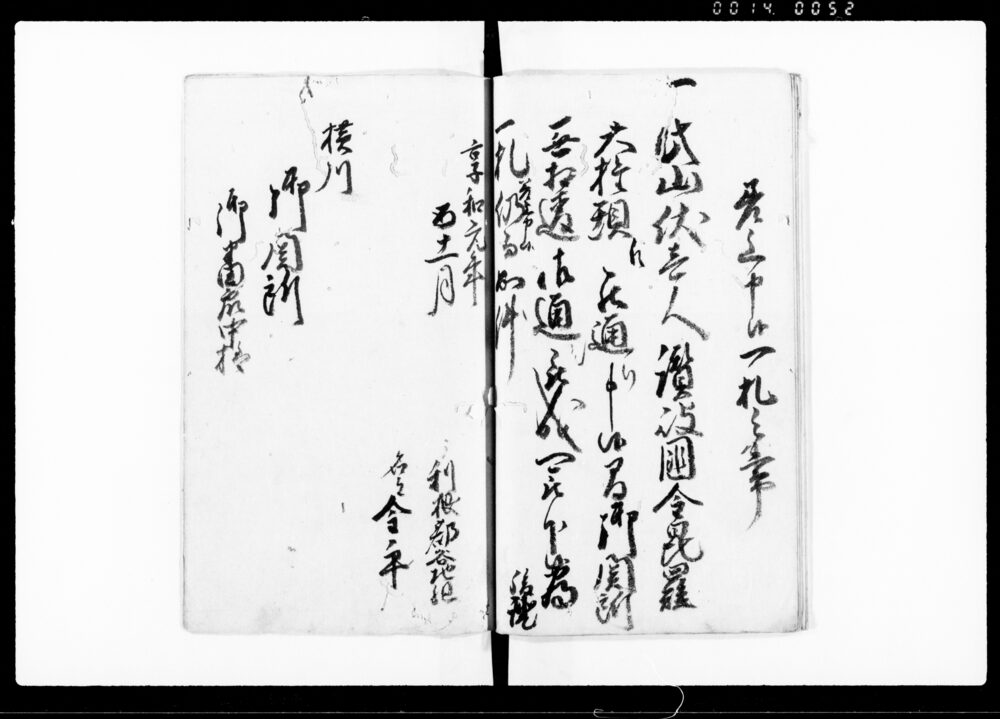 0014 0052
差上申候一札之事
一 此山伏壱人讃岐国金毘羅
大権現江 罷通り申候間御関所
無相違御通被成可被下候為後証
一札差上申候仍而如件
享和元年
酉十一月
利根郡谷地組
名主 金平
横川
御関所
御番衆中様